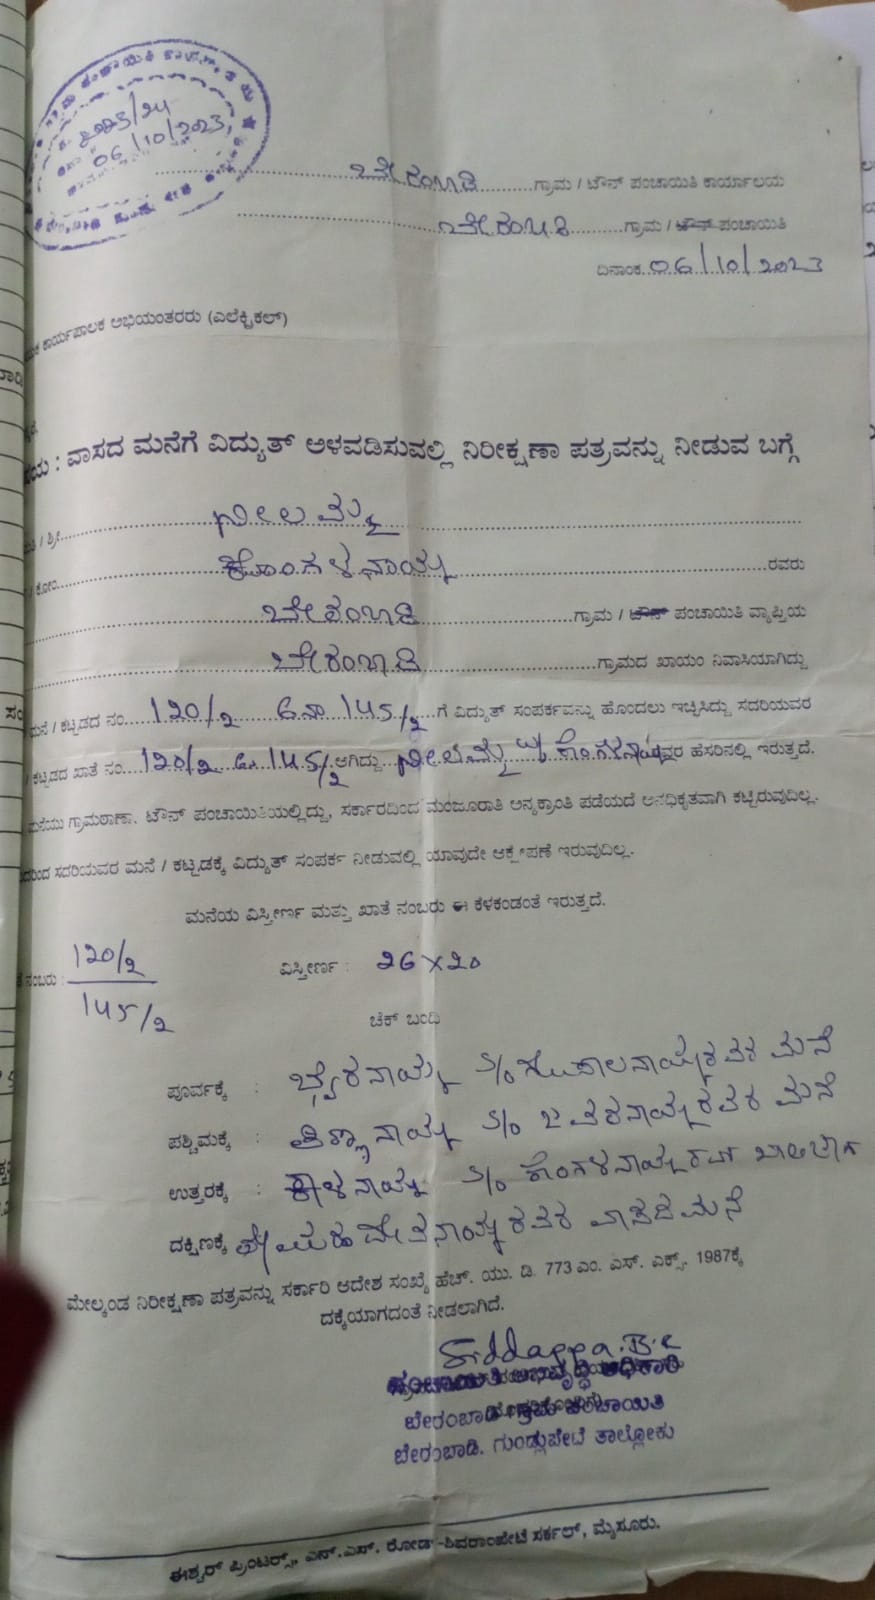 06/10/2023
ಬೇರಂಬಾಡಿ ಗ್ರಾಮ / ಟೌನ್ ಪಂಚಾಯಿತಿ ಕಾರ್ಯಾಲಯ
ಬೇರಂಬಾಡಿ ಗ್ರಾಮ / ಟೌನ್ ಪಂಚಾಯಿತಿ
ದಿನಾಂಕ 06/10/2023
ಕಾರ್ಯಪಾಲಕ ಅಭಿಯಂತರರು (ಎಲೆಕ್ಟ್ರಿಕಲ್)
: ವಾಸದ ಮನೆಗೆ ವಿದ್ಯುತ್ ಅಳವಡಿಸುವಲ್ಲಿ ನಿರೀಕ್ಷಣಾ ಪತ್ರವನ್ನು ನೀಡುವ ಬಗ್ಗೆ
/ ಶ್ರೀ ನೀಲಮ್ಮ
/ ಕೋಂ ಕೊಂಗಳನಾಯ್ಕ ರವರು
ಬೇರಂಬಾಡಿ ಗ್ರಾಮ / ಟೌನ್ ಪಂಚಾಯಿತಿ ವ್ಯಾಪ್ತಿಯ
ಬೇರಂಬಾಡಿ ಗ್ರಾಮದ ಖಾಯಂ ನಿವಾಸಿಯಾಗಿದ್ದು
ಮನೆ / ಕಟ್ಟಡದ ನಂ 120/2 145/2 ಗೆ ವಿದ್ಯುತ್ ಸಂಪರ್ಕವನ್ನು ಹೊಂದಲು ಇಚ್ಛಿಸಿದ್ದು ಸದರಿಯವರ
/ ಕಟ್ಟಡದ ಖಾತೆ ನಂ 120/2 145/2 ಆಗಿದ್ದು ನೀಲಮ್ಮ w/o ಕೊಂಗಳನಾಯ್ಕ ರವರ ಹೆಸರಿನಲ್ಲಿ ಇರುತ್ತದೆ.
ಮನೆಯು ಗ್ರಾಮಠಾಣಾ. ಟೌನ್ ಪಂಚಾಯಿತಿಯಲ್ಲಿದ್ದು, ಸರ್ಕಾರದಿಂದ ಮಂಜೂರಾತಿ ಅನ್ಯಕ್ರಾಂತಿ ಪಡೆಯದೆ ಅನಧಿಕೃತವಾಗಿ ಕಟ್ಟಿರುವುದಿಲ್ಲ.
ಸದರಿಯವರ ಮನೆ / ಕಟ್ಟಡಕ್ಕೆ ವಿದ್ಯುತ್ ಸಂಪರ್ಕ ನೀಡುವಲ್ಲಿ ಯಾವುದೇ ಆಕ್ಷೇಪಣೆ ಇರುವುದಿಲ್ಲ.
ಮನೆಯ ವಿಸ್ತೀರ್ಣ ಮತ್ತು ಖಾತೆ ನಂಬರು ಈ ಕೆಳಕಂಡಂತೆ ಇರುತ್ತದೆ.
ನಂಬರು : 120/2 ವಿಸ್ತೀರ್ಣ : 26×20
145/2
ಚೆಕ್ ಬಂದಿ
ಪೂರ್ವಕ್ಕೆ : ಭೈರನಾಯ್ಕ s/o ರವರ ಮನೆ
ಪಶ್ಚಿಮಕ್ಕೆ : s/o ಜವರನಾಯ್ಕರವರ ಮನೆ
ಉತ್ತರಕ್ಕೆ : ಕಾಳನಾಯ್ಕ s/o ಕೊಂಗಳನಾಯ್ಕರವರ
ದಕ್ಷಿಣಕ್ಕೆ ವಾಸದ ಮನೆ
ಮೇಲ್ಕಂಡ ನಿರೀಕ್ಷಣಾ ಪತ್ರವನ್ನು ಸರ್ಕಾರಿ ಆದೇಶ ಸಂಖ್ಯೆ ಹೆಚ್. ಯು. ಡಿ. 773 ಎಂ. ಎಸ್. ಎಕ್ಸ್. 1987ಕ್ಕೆ
ದಕ್ಕೆಯಾಗದಂತೆ ನೀಡಲಾಗಿದೆ.
Siddappa.B.
ಪಂಚಾಯಿತಿ ಅಭಿವೃದ್ಧಿ ಅಧಿಕಾರಿ
ಬೇರಂಬಾಡಿ ಗ್ರಾಮ ಪಂಚಾಯಿತಿ
ಬೇರಂಬಾಡಿ. ಗುಂಡ್ಲುಪೇಟೆ ತಾಲ್ಲೋಕು
ಈಶ್ವರ್ ಪ್ರಿಂಟರ್ಸ್, ಎನ್.ಎಸ್. ರೋಡ್-ಶಿವರಾಂಪೇಟೆ ಸರ್ಕಲ್, ಮೈಸೂರು.